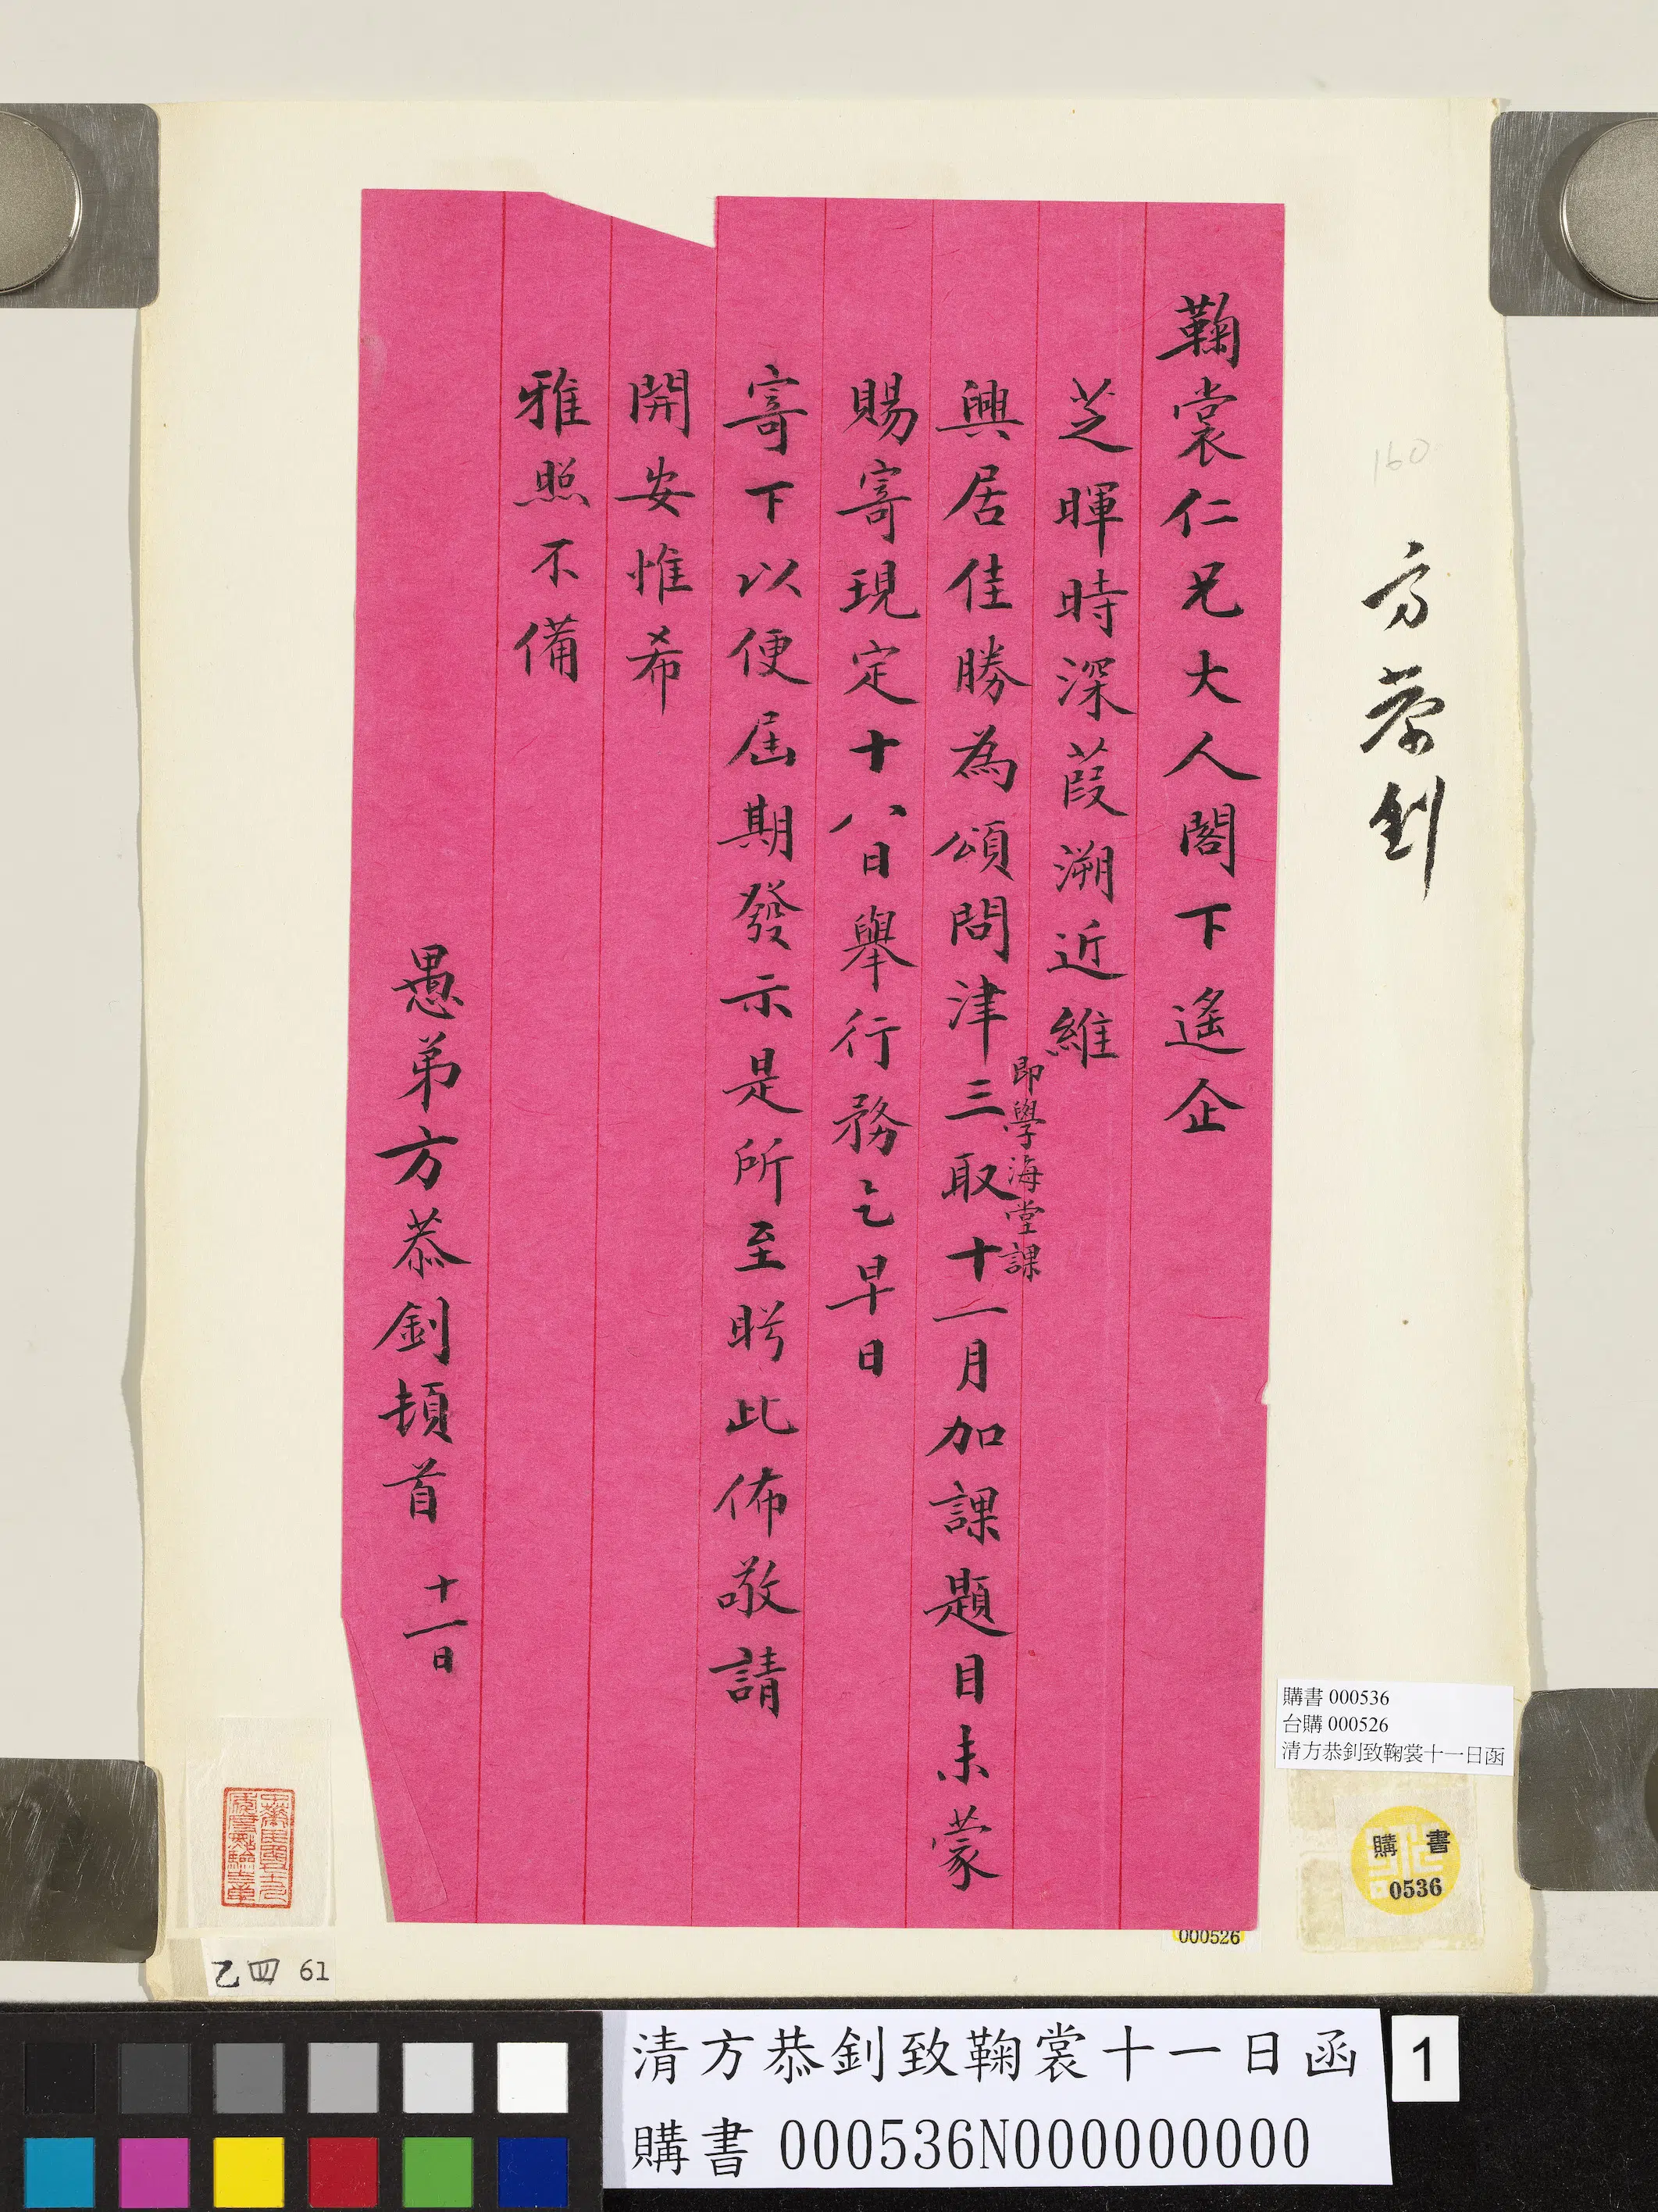 鞠裳仁兄大人閣下遙企
芝暉時深葭溯近維
興居佳勝為頌問津三取十一月加課題目未蒙
即學海堂課
賜寄現定十八日舉行務乞早日
寄下以便屆期發示是所至盻此佈敬請
開安惟希
雅照不備
愚弟方恭釗頓首 十一日
方恭釗
160
購書 000536
台購 000526
清方恭釗致鞠裳十一日函
購書
0536
000526
乙四 61
清方恭釗致鞠裳十一日函
購書 000536N000000000
1